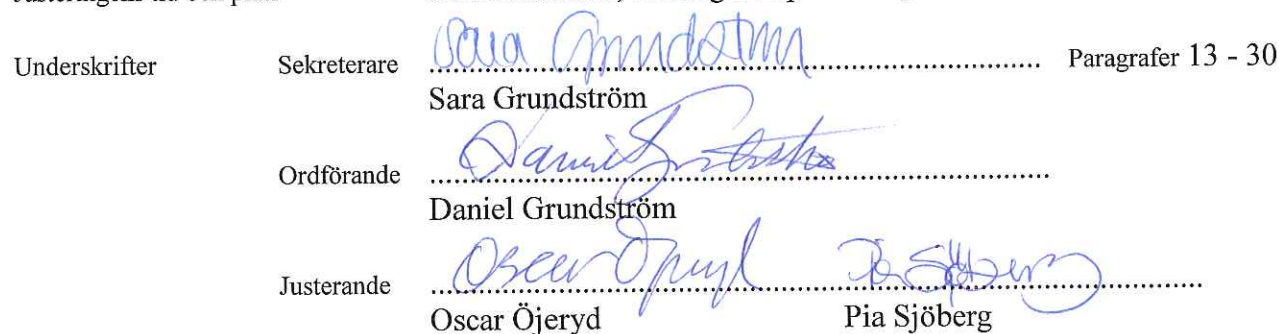 Underskrifter Sekreterare Sara Grundström Paragrafer 13 - 30
Sara Grundström
Ordförande Daniel Grundström
Daniel Grundström
Justerande Oscar Öjeryd Pia Sjöberg
Oscar Öjeryd Pia Sjöberg